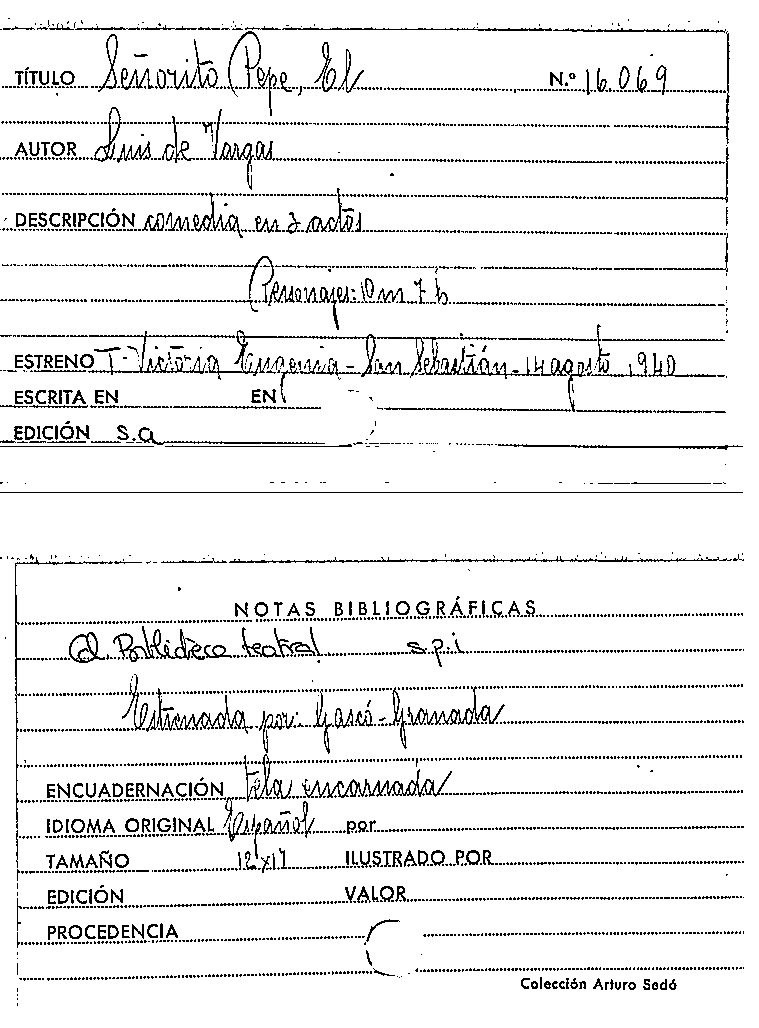 TÍTULO Señorito Pepe, El N.º 16.069
AUTOR Luis de Vargas
DESCRIPCIÓN comedia en 3 actos
Personajes: 10 m 7 h
ESTRENO T- Victoria Eugenia - San Sebastián - 14 agosto 1940
ESCRITA EN EN
EDICIÓN s.a
NOTAS BIBLIOGRÁFICAS
Col. Biblioteca teatral s.p.i
Estrenada por: Gascó - Granada
ENCUADERNACIÓN tela encarnada
IDIOMA ORIGINAL Español por
TAMAÑO 12 x 17 ILUSTRADO POR
EDICIÓN VALOR
PROCEDENCIA
Colección Arturo Sedó